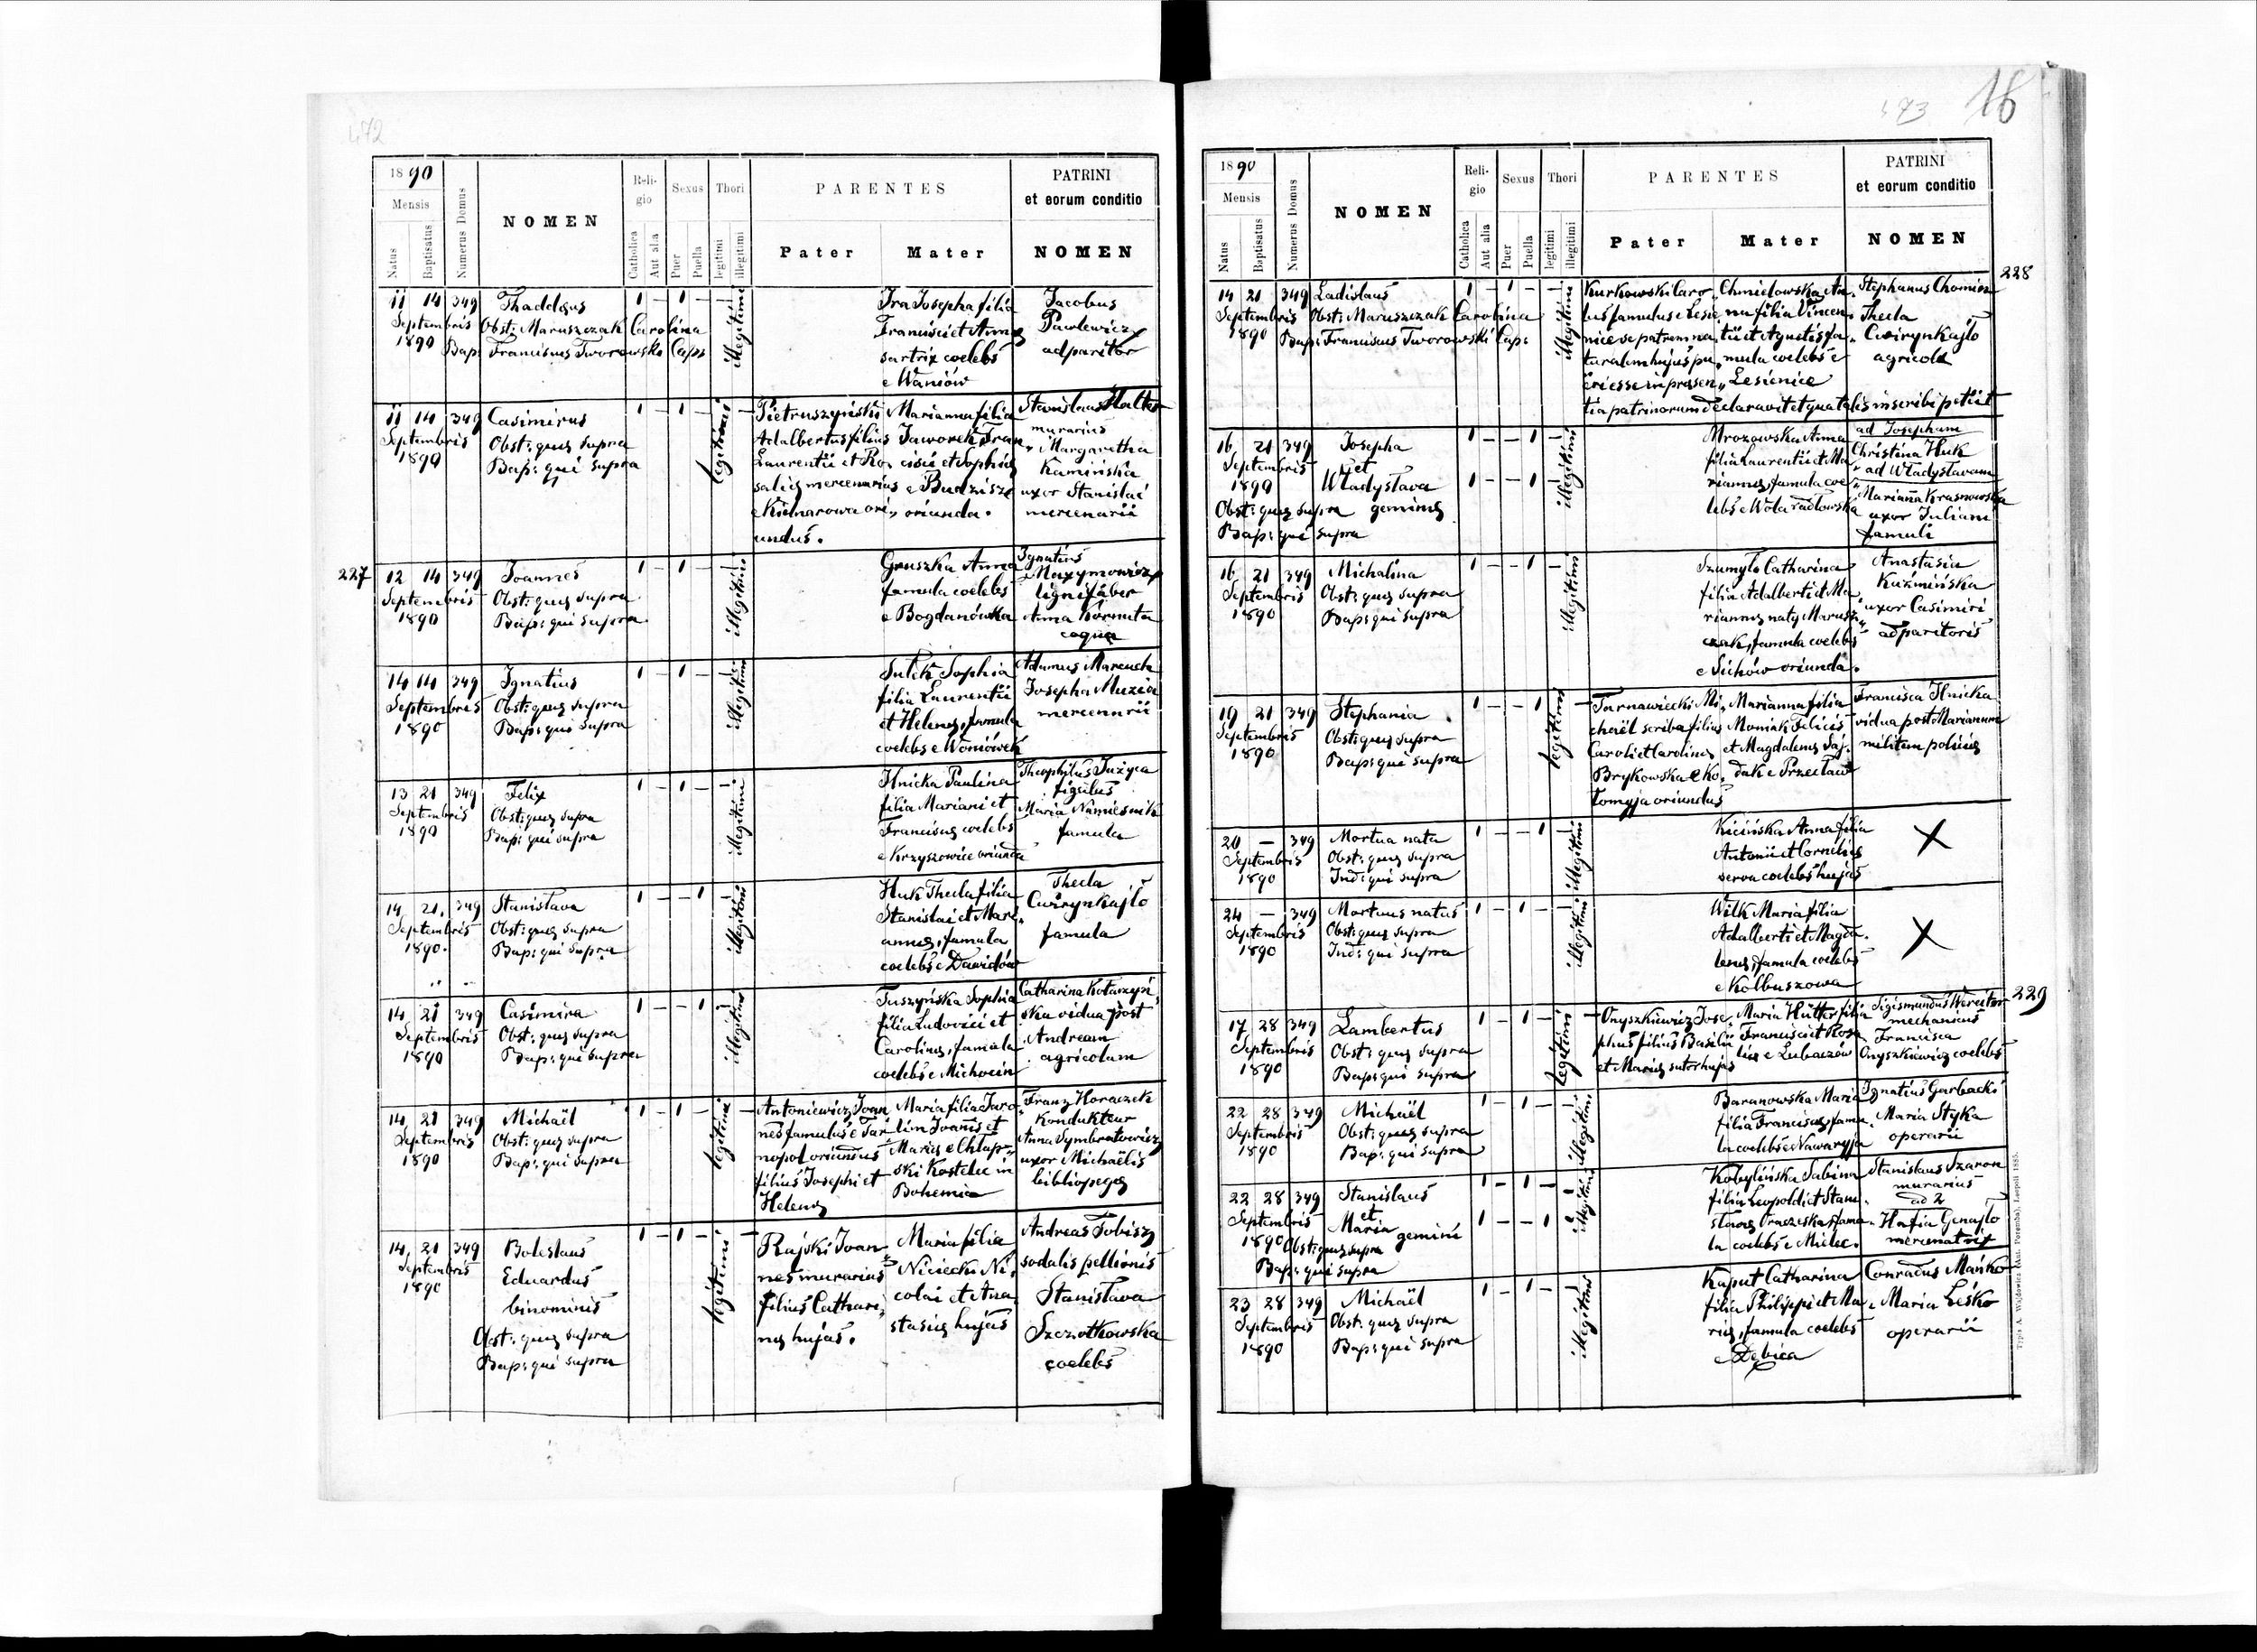 472
1890
Mensis
Natus
Baptisatus
Numerus Domus
NOMEN
Reli-
gio
Catholica
Aut alia
Sexus
Puer
Puella
Thori
legitimi
illegitimi
PARENTES
Pater
Mater
PATRINI
et eorum conditio
NOMEN
11 14 349
Septembris
1890
Thaddæus
Obst: Maruszczak Carolina
Bap: Franciscus Tworowski Caps
1 - 1 - - 1
illegitimi
Ira Josepha filia
Francisci et Annæ
sartrix coelebs
e Waniów
Jacobus
Pawlewicz
adparitor
11 14 349
Septembris
1890
Casimirus
Obst: quæ supra
Bap: qui supra
1 - 1 - 1 -
legitimi
Pietruszyński
Adalbertus filius
Laurentii et Ro,
saliæ mercenarius
e Kielnarowa ori,,
undus.
Marianna filia
Jaworek Fran
cisci et Sophiæ
e Budzisz
oriunda.
Stanislaus Halter
murarius
Margaretha
Kamińska
uxor Stanislai
mercenarii
227
12 14 349
Septembris
1890
Joannes
Obst: quæ supra
Bap: qui supra
1 - 1 - - 1
illegitimi
Gruszka Anna
famula coelebs
e Bogdanówka
Ignatius
Maxymowicz
lignifaber
Anna Kormuta
coqua
14 14 349
Septembris
1890
Ignatius
Obst: quæ supra
Bap: qui supra
1 - 1 - - 1
illegitimi
Sulek Sophia
filia Laurentii
et Helenæ, famula
coelebs e Woniówek
Adamus Marcuch
Josepha Muzia
mercenarii
13 21 349
Septembris
1890
Felix
Obst: quæ supra
Bap: qui supra
1 - 1 - - 1
illegitimi
Ilnicka Paulina
filia Mariani et
Franciscæ coelebs
e Krzyszowice oriunda
Theophilus Tużyca
figulus
Maria Namiesnik
famula
14 21 349
Septembris
1890.
Stanislava
Obst: quæ supra
Bap: qui supra
1 - - 1 - 1
illegitimi
Huk Thecla filia
Stanislai et Mari,
annæ, famula
coelebs e Dawidów
Thecla
Cwirynkajło
famula
14 21 349
Septembris
1890
Casimira
Obst: quæ supra
Bap: qui supra
1 - - 1 - 1
illegitimi
Tuszyńska Sophia
filia Ludovici et
Carolinæ, famula
coelebs e Michocin
Catharina Kotarzyń,
ska vidua post
Andream
agricolam
14 21 349
Septembris
1890
Michaël
Obst: quæ supra
Bap: qui supra
1 - 1 - 1 -
legitimi
Antoniewicz Joan
nes famulus e Tar
nopol oriundus
filius Josephi et
Helenæ
Maria filia Jaro
lim Joannis et
Mariæ e Chlap,,
ski Kostelec in
Bohemia
Franz Horaczek
Kondukteur
Anna Symbratowicz
uxor Michaëlis
bibliopegæ
14 21 349
Septembris
1890
Boleslaus
Eduardus
binominis
Obst: quæ supra
Bap: qui supra
1 - 1 - 1 -
legitimi
Rajski Joan
nes murarius
filius Cathari,
næ hujas.
Maria filia
Niciecki Ni,
colai et Ana
stasiæ hujas
Andreas Tobisz
sodalis pellionis
Stanislava
Szczotkowska
coelebs
473
16
1890
Mensis
Natus
Baptisatus
Numerus Domus
NOMEN
Reli-
gio
Catholica
Aut alia
Sexus
Puer
Puella
Thori
legitimi
illegitimi
PARENTES
Pater
Mater
PATRINI
et eorum conditio
NOMEN
228
14 21 349
Septembris
1890
Ladislaus
Obst: Maruszczak Carolina
Bap: Franciscus Tworowski Cap:
1 - 1 - - 1
illegitimi
Kurkowski Caro,,
lus famulus e Lesie
nice se patrem na,
turalem hujus pu,
eri esse in præsen,,
tia patrinorum declaravit et qua talis inscribi petiit
Chmielowska An,
na filia Vincen,
tii et Agnetis fa,
mula coelebs e
Lesienice
Stephanus Chomin
Thecla
Cwirynkajło
agricola
16 21 349
Septembris
1890
Josepha
et
Władysława
geminæ
Obst: quæ supra
Bap: qui supra
1 - - 1 - 1
1 - - 1 - 1
illegitimi
Mrozowska Anna
filia Laurentii et Ma
riannæ, famula coe
lebs e Wola radłowska
ad Josepham
Christina Huk
ad Władysławam
Marianna Krasnowska
uxor Juliani
famuli
16 21 349
Septembris
1890
Michalina
Obst: quæ supra
Bap: qui supra
1 - - 1 - 1
illegitimi
Szumyło Catharina
filia Adalberti et Ma
riannæ natæ Marusz,,
czak, famula coelebs
e Sichów oriunda.
Anastasia
Kuźmińska
uxor Casimiri
adparitoris
19 21 349
Septembris
1890
Stephania
Obst: quæ supra
Bap: qui supra
1 - - 1 1 -
legitimi
Tarnawiecki Mi,
chaël scriba filius
Caroli et Carolinæ
Brykowska e Ko,
łomyja oriundus
Marianna filia
Moniak Felicis
et Magdalenæ Saj,
dak e Przecław
Francisca Ilnicka
vidua post Marianum
militem policiæ
20 - 349
Septembris
1890
Mortua nata
Obst: quæ supra
Ind: qui supra
1 - - 1 - 1
illegitimi
Kicińska Anna filia
Antonii et Corneliæ
serva coelebs hujas
X
24 - 349
Septembris
1890
Mortuus natus
Obst: quæ supra
Ind: qui supra
1 - 1 - - 1
illegitimi
Wilk Maria filia
Adalberti et Magda,
lenæ, famula coelebs
e Kolbuszowa
X
229
17 28 349
Septembris
1890
Lambertus
Obst: quæ supra
Bap: qui supra
1 - 1 - 1 -
legitimi
Onyszkiewicz Jose,
phus filius Basilii
et Mariæ sutor hujas
Maria Hütter filia
Francisci et Rosa
liæ e Lubaczów
Sigismundus Wercitor
mechanicus
Francisca
Onyszkiewicz coelebs
22 28 349
Septembris
1890
Michaël
Obst: quæ supra
Bap: qui supra
1 - 1 - - 1
illegitimi
Baranowska Maria
filia Franciscæ, famu,
la coelebs e Nawaryja
Ignatius Garbacki
Maria Styka
operarii
22 28 349
Septembris
1890
Stanislaus
et
Maria gemini
Obst: quæ supra
Bap: qui supra
1 - 1 - - 1
1 - - 1 - 1
illegitimi
Kobylińska Sabina
filia Leopoldi et Stani,
slavæ Oraczeska, famu,
la coelebs e Mielec.
Stanislaus Szaron
murarius
ad 2
Hafia Genajło
mercenatrix
23 28 349
Septembris
1890
Michaël
Obst: quæ supra
Bap: qui supra
1 - 1 - - 1
illegitimi
Kaput Catharina
filia Philippi et Ma,
riæ, famula coelebs
e Dębica
Conradus Mańko
Maria Leśko
operarii
Typis A. Wajdowicz (Ant. Poremba), Leopoli 1885.